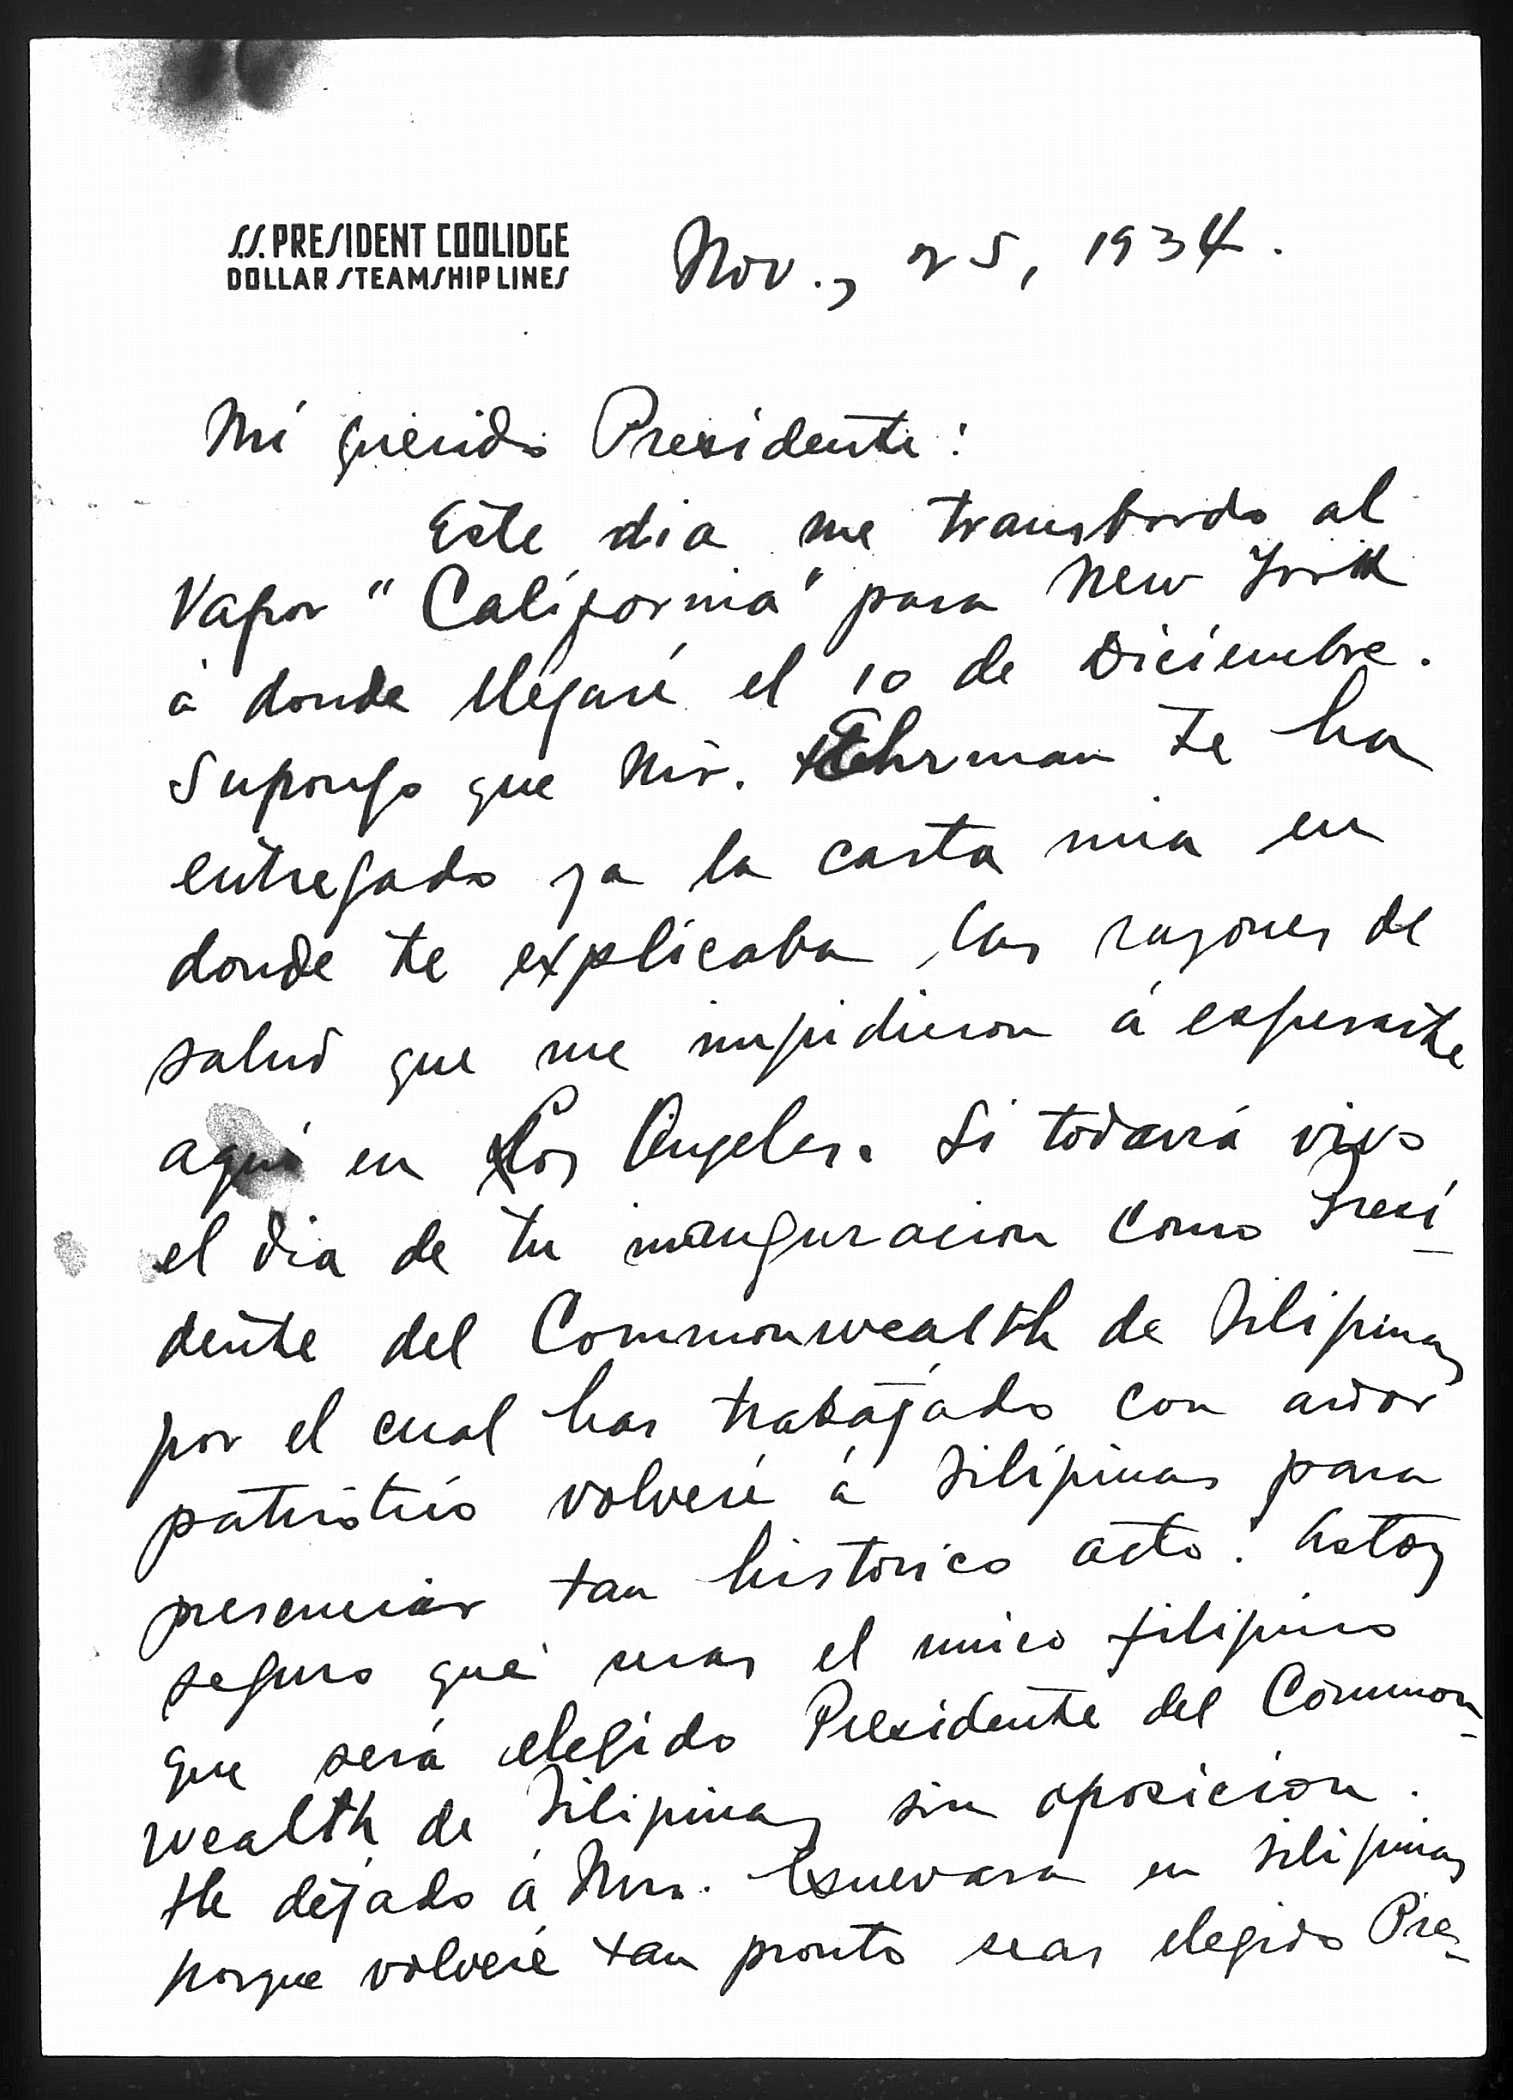 S.S. PRESIDENT COOLIDGE
DOLLAR STEAMSHIP LINES
Nov., 25, 1934.
Mi querido Presidente:
Este dia me transbordo al
Vapor "California" para New York
á donde llegaré el 10 de Diciembre.
Supongo que Mr. Ehrman te ha
entregado ya la carta mia en
donde te explicaba las razones de
salud que me impidieron á esperarte
aquí en Los Angeles. Si todavía vivo
el dia de tu inauguracion como Presi-
dente del Commonwealth de Filipinas
por el cual has trabajado con ardor
patriótico volveré á Filipinas para
presenciar tan historico acto. Estoy
seguro que seras el unico filipino
que será elegido Presidente del Common-
wealth de Filipinas sin oposicion.
He dejado á Mrs. Guevara en Filipinas
porque volveré tan pronto seas elegido Pre-